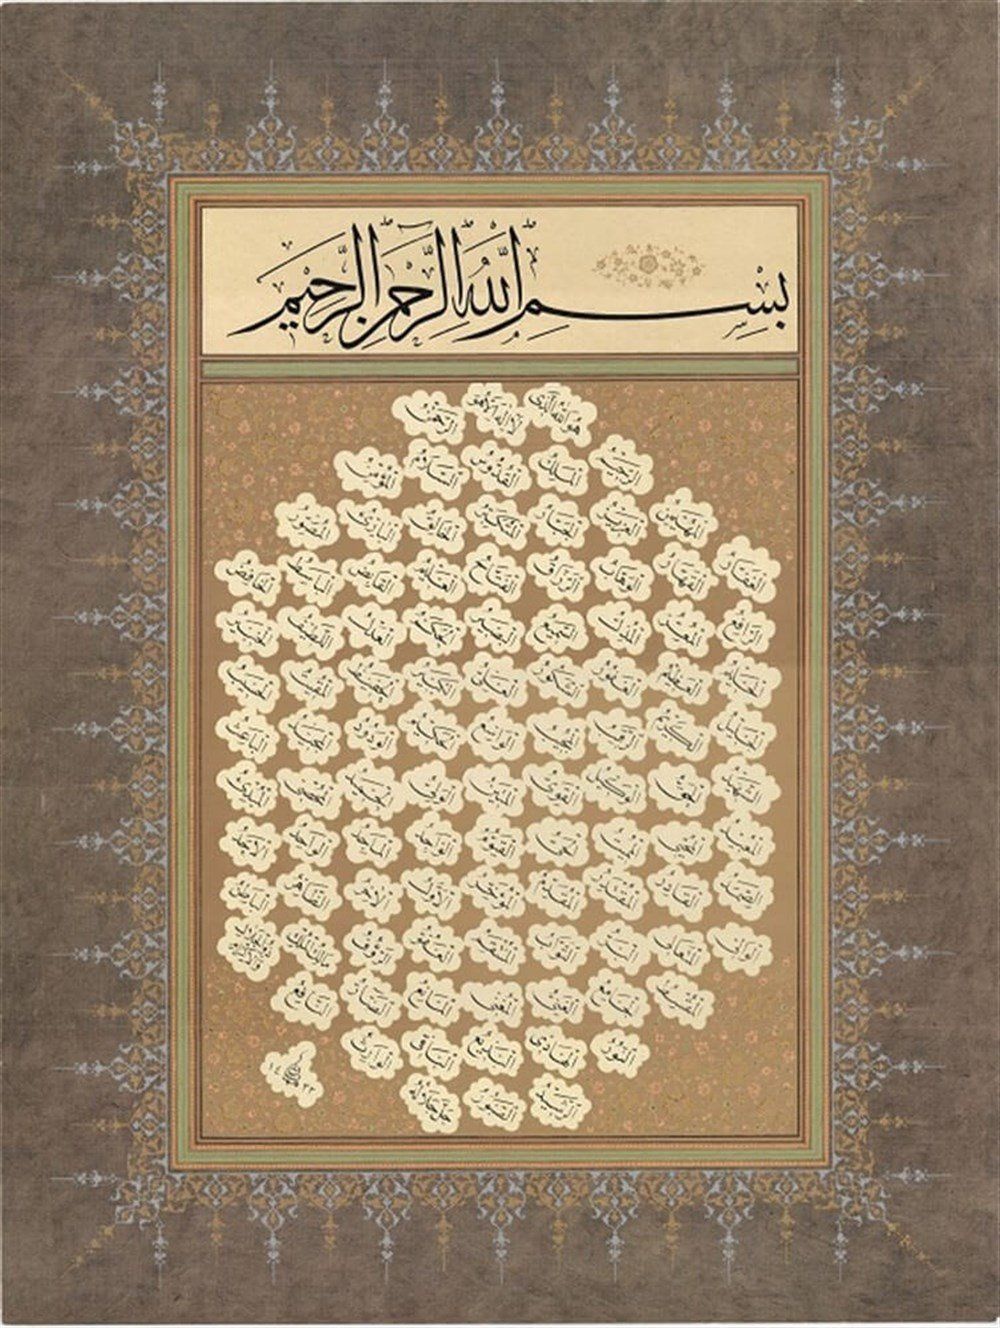 بِسْمِ اللهِ الرَّحْمٰنِ الرَّحِيمِ
هو الله الذى لا اله الا هو الرحمن
الرحيم الملك القدوس السلام المؤمن
المهيمن العزيز الجبار المتكبر الخالق البارئ المصور
الغفار القهار الوهاب الرزاق الفتاح العليم القابض الباسط الخافض
الرافع المعز المذل السميع البصير الحكم العدل اللطيف الخبير
الحليم العظيم الغفور الشكور العلى الكبير الحفيظ المقيت الحسيب
الجليل الكريم الرقيب المجيب الواسع الحكيم الودود المجيد الباعث
الشهيد الحق الوكيل القوى المتين الولى الحميد المحصى المبدئ
المعيد المحيى المميت الحى القيوم الواجد الماجد الواحد الاحد
الصمد القادر المقتدر المقدم المؤخر الاول الاخر الظاهر الباطن
الوالى المتعالى البر التواب المنتقم العفو الرؤف مالك الملك ذو الجلال والاكرام
المقسط الجامع الغنى المغنى المانع الضار النافع
النور الهادى البديع الباقى الوارث
الرشيد الصبور جل جلاله